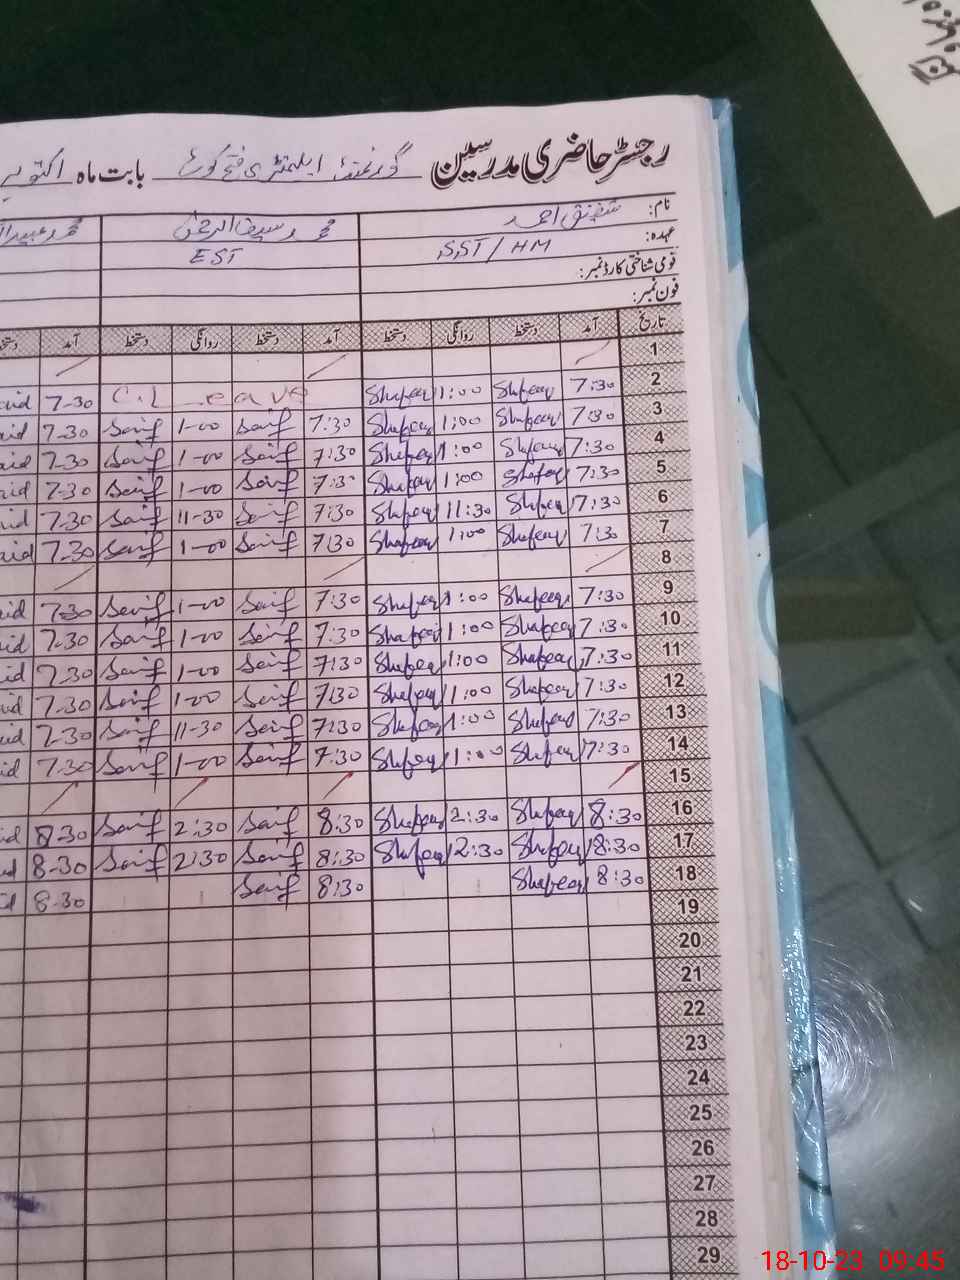 رجسٹر حاضری مدرسین گورنمنٹ ایلیمنٹری فتح کوٹ بابت ماہ اکتوبر
نام: شفیق احمد محمد سیف الرحمن محمد عبید
عہدہ: S.ST / HM EST
قومی شناختی کارڈ نمبر:
فون نمبر:
تاریخ آمد دستخط روانگی دستخط آمد دستخط روانگی دستخط آمد دستخط
1
2 7:30 Shafeeq 1:00 Shafeeq C.Leave 7-30
3 7:30 Shafeeq 1:00 Shafeeq 7:30 Saif 1-00 Saif 7-30
4 7:30 Shafeeq 1:00 Shafeeq 7:30 Saif 1-00 Saif 7-30
5 7:30 Shafeeq 1:00 Shafeeq 7:30 Saif 1-00 Saif 7-30
6 7:30 Shafeeq 11:30 Shafeeq 7:30 Saif 11-30 Saif 7-30
7 7:30 Shafeeq 1:00 Shafeeq 7:30 Saif 1-00 Saif 7-30
8
9 7:30 Shafeeq 1:00 Shafeeq 7:30 Saif 1-00 Saif 7-30
10 7:30 Shafeeq 1:00 Shafeeq 7:30 Saif 1-00 Saif 7-30
11 7:30 Shafeeq 1:00 Shafeeq 7:30 Saif 1-00 Saif 7-30
12 7:30 Shafeeq 1:00 Shafeeq 7:30 Saif 1-00 Saif 7-30
13 7:30 Shafeeq 1:00 Shafeeq 7:30 Saif 11-30 Saif 7-30
14 7:30 Shafeeq 1:00 Shafeeq 7:30 Saif 1-00 Saif 7-30
15
16 8:30 Shafeeq 2:30 Shafeeq 8:30 Saif 2:30 Saif 8-30
17 8:30 Shafeeq 2:30 Shafeeq 8:30 Saif 2:30 Saif 8-30
18 8:30 Shafeeq 8:30 Saif 8-30
19
20
21
22
23
24
25
26
27
28
29
18-10-23 09:45